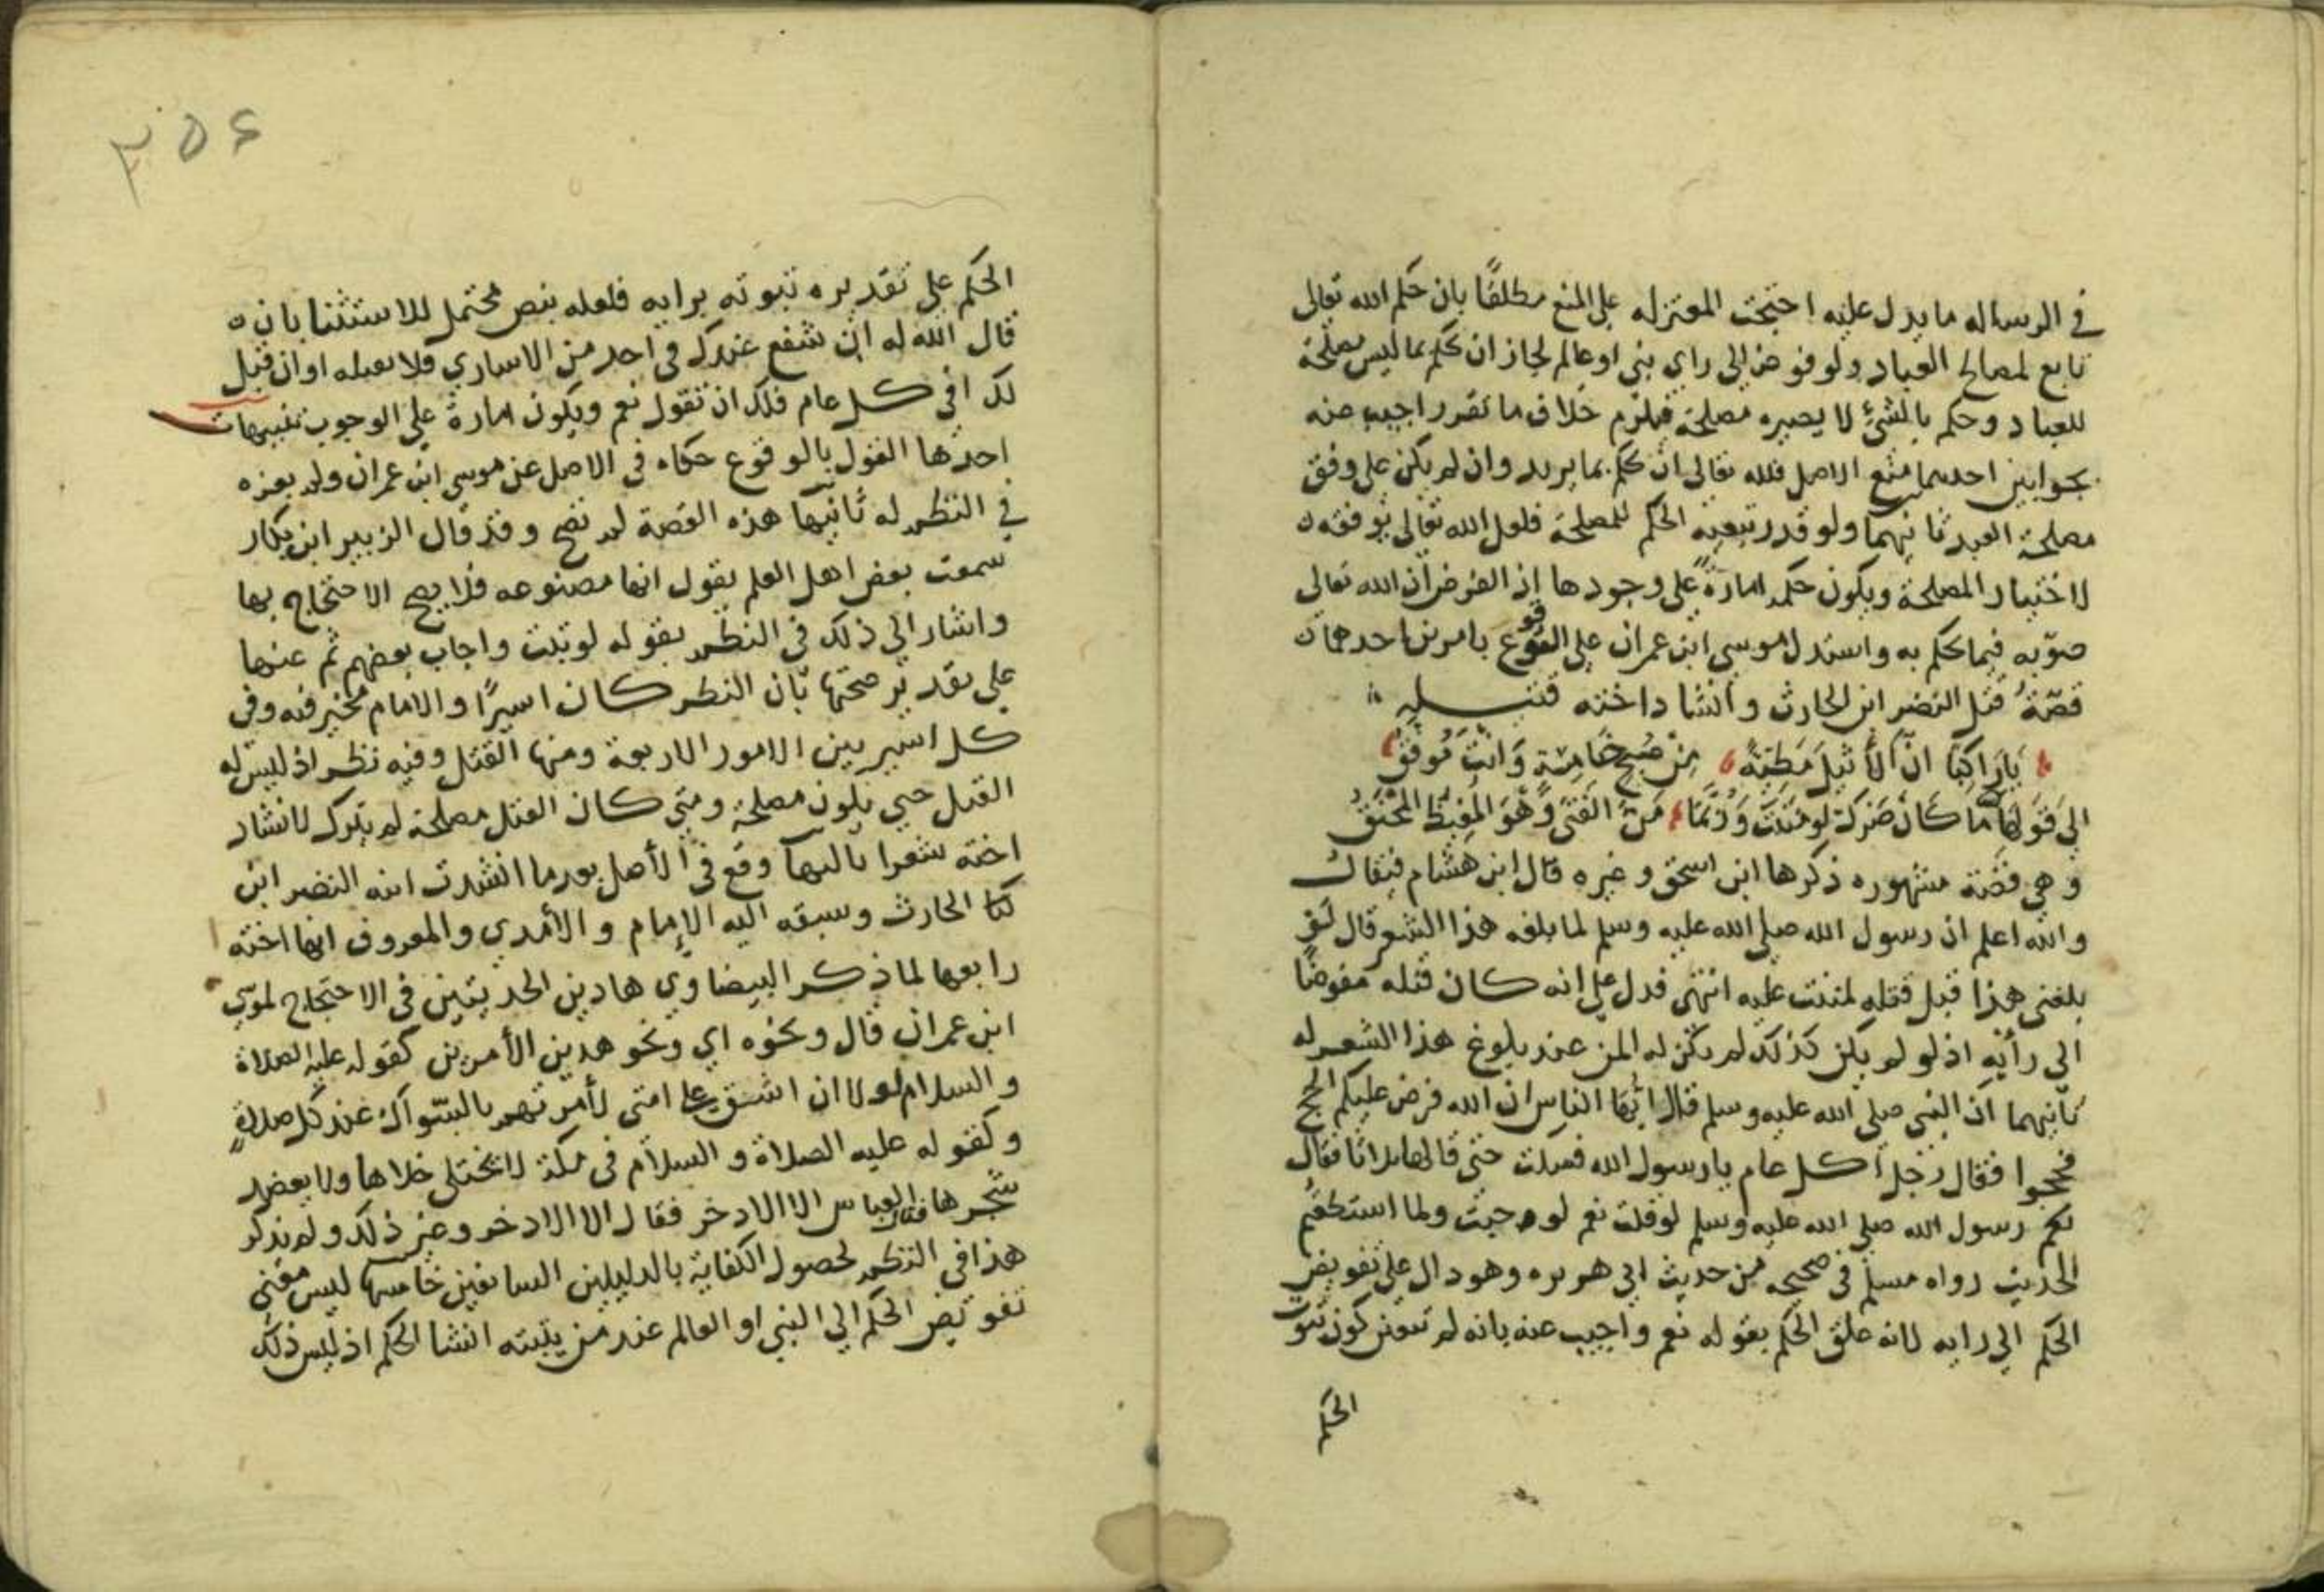 في الرساله ما يدل عليه احتجت المعتزله على المنع مطلقًا بان حكم الله تعالى
تابع لمصالح العباد ولو فوض الى راي نبي او عالم لجاز ان يحكم بما ليس مصلحة
للعباد وحكم بالشئ لا يصيره مصلحة فيلزم خلاف ما تقرر اجيب عنه
بجوابين احدهما منع الاصل فلله تعالى ان يحكم بما يريد وان لم يكن على وفق
مصلحة العبد ثانيهما ولو قدر تبعية الحكم للمصلحة فلعل الله تعالى يوفقه
لاختيار المصلحة ويكون حكمه امارة على وجودها اذ الفرض ان الله تعالى
صوبه فيما يحكم به واستدل لموسى ابن عمران على الوقوع بامرين احدهما
قصّة قتل النضر ابن الحارث وانشاد اخته قتيلة
يَا رَاكِبًا انّ الأثَيلَ مَظِنّةٌ مِنْ صُبحِ خَامِسَةٍ وَانتَ مُوفقُ
الى قَولِهَا مَا كَانَ ضَرك لَو مَنَنتَ وَرُبّمَا مَنّ الفَتَى وَهوَ المَغِيظُ المحنَقُ
وهي قصّة مشهوره ذكرها ابن اسحق وغيره قال ابن هشام فيقال
والله اعلم ان رسول الله صلى الله عليه وسلم لما بلغه هذا الشعر قال لو
بلغني هذا قبل قتله لمننت عليه انتهى فدل على انه كان قتله مفوضًا
الى رأيه اذ لو لم يكن كذلك لم يكن له المن عند بلوغ هذا الشعر له
ثانيهما ان النبي صلى الله عليه وسلم قال ايها الناس ان الله فرض عليكم الحج
فحجوا فقال رجل اكل عام يا رسول الله فسكت حتى قالها ثلاثا فقال
لكم رسول الله صلى الله عليه وسلم لو قلت نعم لوجبت ولما استطعتم
الحديث رواه مسلم في صحيحه من حديث ابي هريره وهو دال على تفويض
الحكم الى رايه لانه علق الحكم بقوله نعم واجيب عنه بانه لم يتعين كون ثبوت
الحكم
٣٥٤
الحكم على تقديره ثبوته برايه فلعله بنص محتمل للاستثنا بان
قال الله له ان شفع عندك في احد من الاساري فلا تقبله او ان قيل
لك افي كل عام فلك ان تقول نعم ويكون امارة على الوجوب تنبيهات
احدها القول بالوقوع حكاه في الاصل عن موسى ابن عمران ولم يعزه
في النظم له ثانيها هذه القصة لم تصح وقد قال الزبير ابن بكار
سمعت بعض اهل العلم يقول انها مصنوعه فلا يصح الاحتجاج بها
واشار الى ذلك في النظم بقوله لو ثبت واجاب بعضهم ثم عنها
على تقدير صحتها بان النظر كان اسيرًا والامام مخير فيه وفي
كل اسير بين الامور الاربعة ومنها القتل وفيه نظر اذ ليس له
القتل حتى يكون مصلحة ومتى كان القتل مصلحة لم يترك لانشاد
اخته شعرا ثالثها وقع في الأصل بعد ما انشدت ابنه النضر ابن
الحارث وسبقه اليه الإمام والأمدي والمعروف انها اخته
رابعها لما ذكر البيضاوي هاذين الحديثين في الاحتجاج لموسى
ابن عمران قال ونحوه اي ونحو هدين الأمرين كقوله عليه الصلاة
والسلام لولا ان اشق على امتي لأمرتهم بالسّواك عند كل صلاةٍ
وكقوله عليه الصلاة والسلام في مكة لا يختلى خلاها ولا يعضد
شجرها فقال العباس الا الادخر فقال الا الادخر وغير ذلك ولم يذكر
هذا في النظم لحصول الكفاية بالدليلين السابقين خامسها ليس معنى
تفويض الحكم الى النبي او العالم عند من يثبته انشا الحكم اذ ليس ذلك